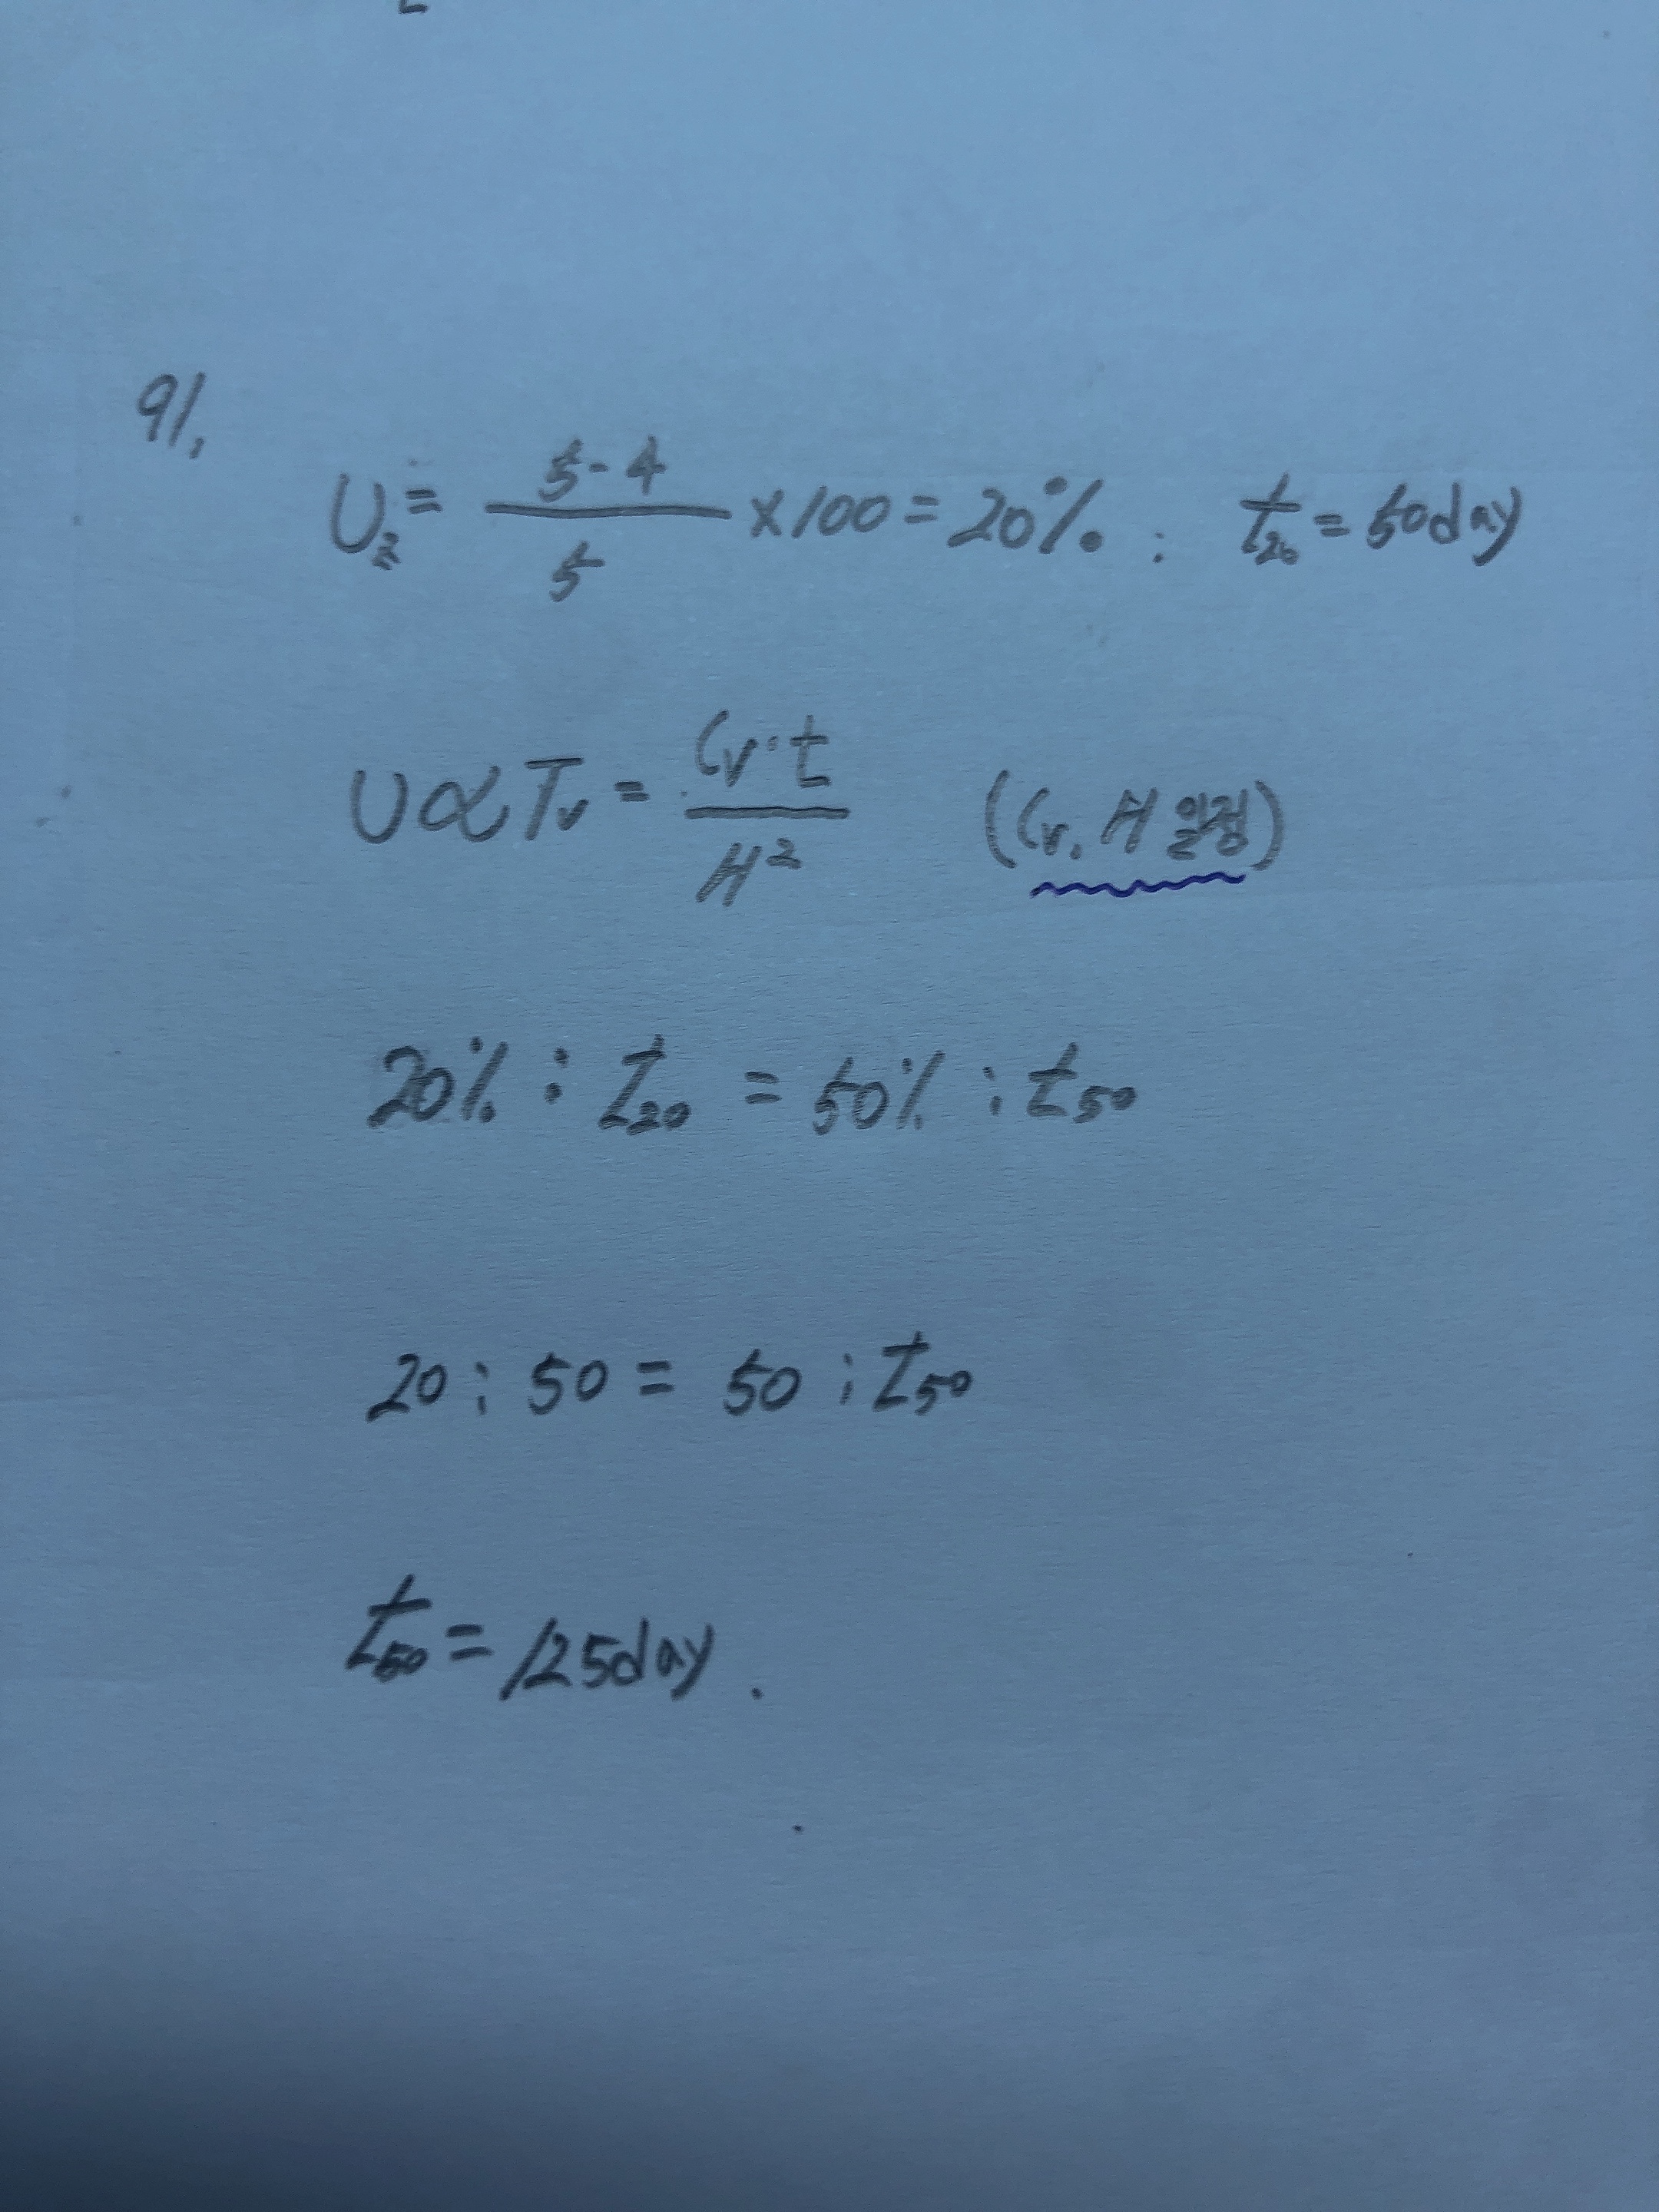 91.
U₂ = (5-4)/5 × 100 = 20% : t₂₀ = 50day
U ∝ Tv = Cv·t/H² (Cv, H 일정)
20% : t₂₀ = 50% : t₅₀
20 : 50 = 50 : t₅₀
t₅₀ = 125day.